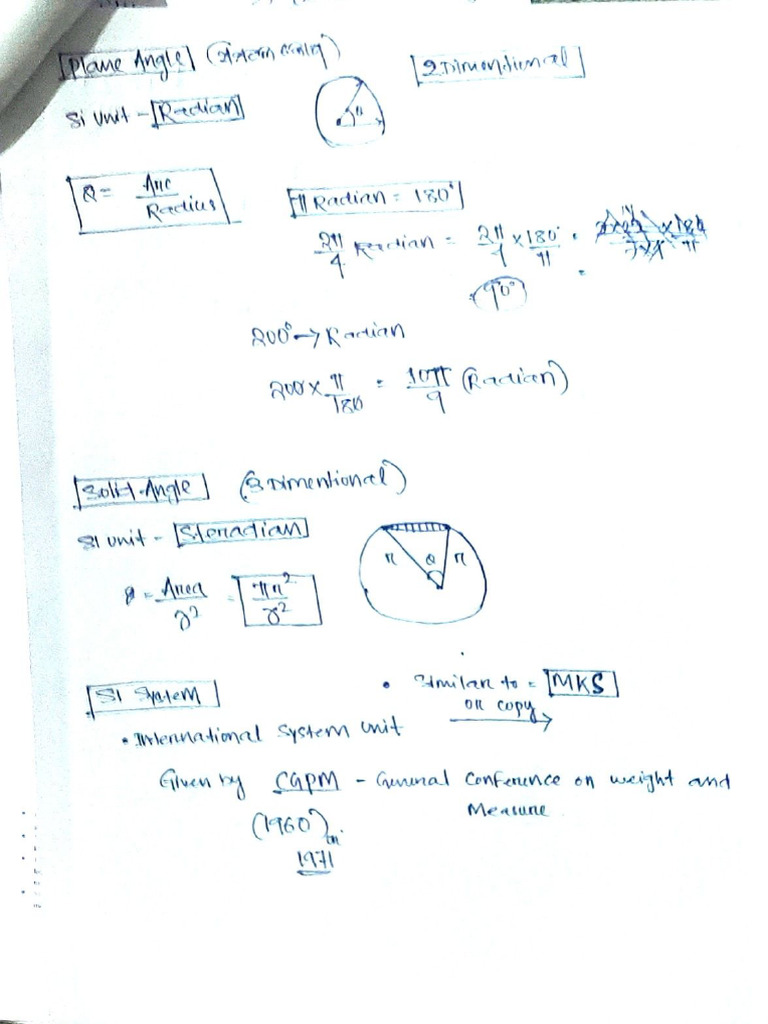 Plane Angle
2 Dimentional
SI Unit - Radian
θ = Arc / Radius
π Radian = 180°
2π/4 Radian = 2π/4 × 180°/π =
90°
200° → Radian
200 × π/180 = 10π/9 (Radian)
Solid Angle (3 Dimentional)
SI unit - Steradian
r θ r
θ = Area/r² = πr²/r²
SI System
• Similar to = MKS
or copy
• International System unit
Given by CGPM - General Conference on weight and
Measure
(1960)
or
1971